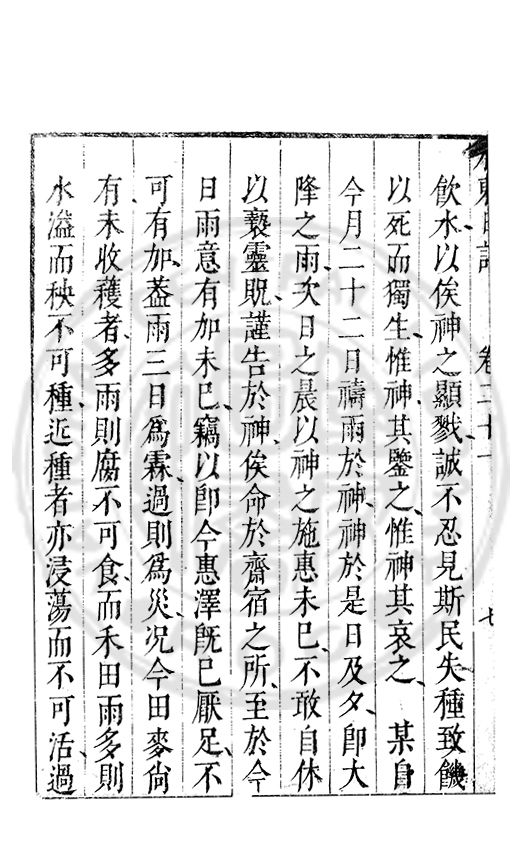 水東日記　卷三十一　七
飲水、以俟神之顯戮、誠不忍見斯民失種致饑
以死而獨生、惟神其鑒之、惟神其哀之、　某自
今月二十二日禱雨於神、神於是日及夕、卽大
降之雨、次日之晨以神之施惠未已、不敢自休
以褻靈貺、謹告於神、俟命於齋宿之所、至於今
日雨意有加未已、竊以卽今惠澤旣已厭足、不
可有加、葢雨三日為霖、過則為災、况今田麥尙
有未收穫者、多雨則腐不可食、而禾田雨多則
水溢而秧不可種、近種者亦浸蕩而不可活、過